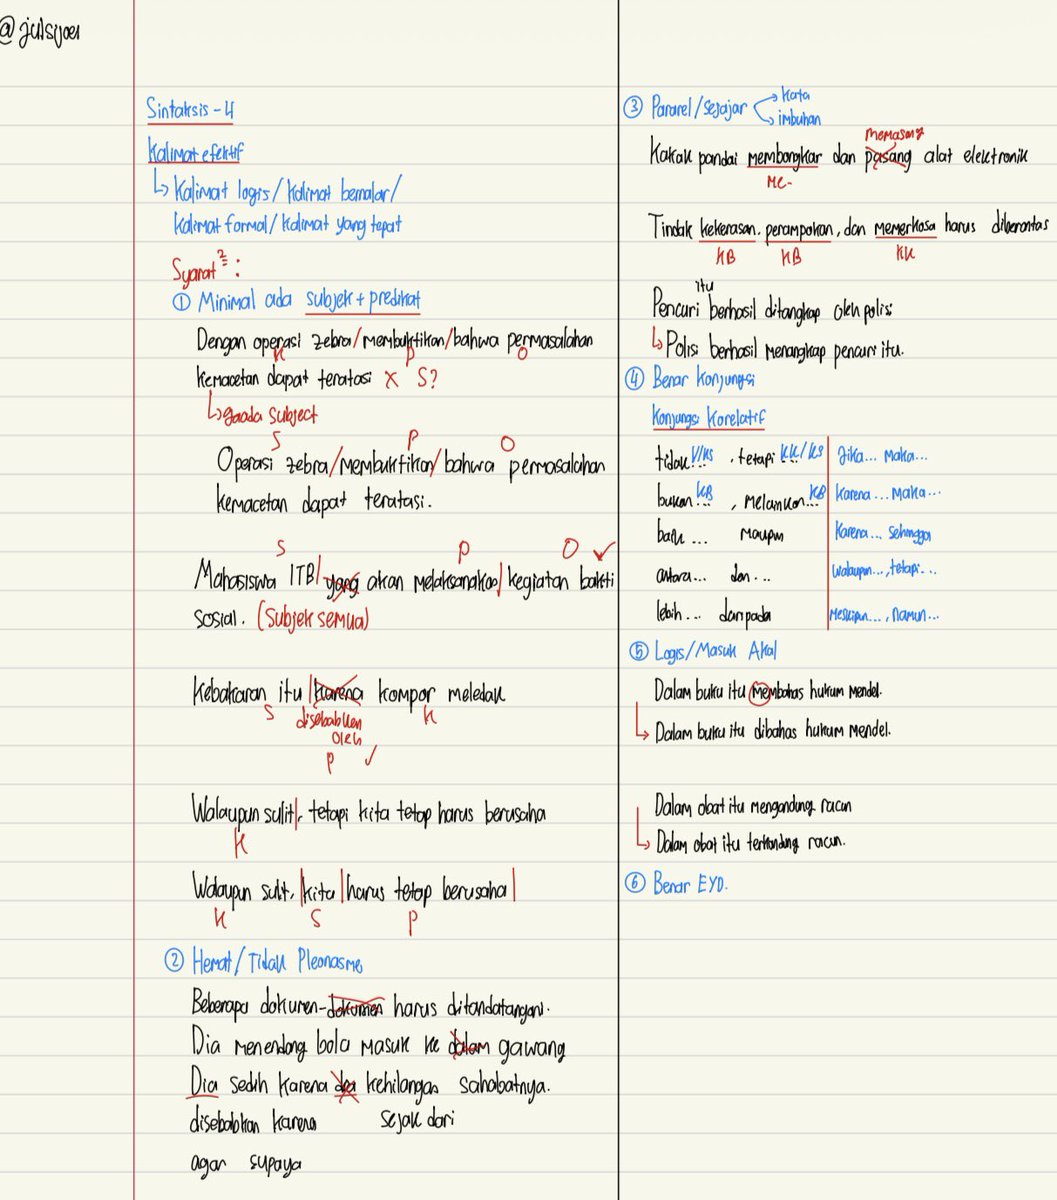 @julsyoei
Sintaksis - 4
Kalimat efektif
↳ Kalimat logis / kalimat bernalar /
kalimat formal / kalimat yang tepat
Syarat² :
① Minimal ada subjek + predikat
Dengan operasi zebra / membuktikan / bahwa permasalahan
K P O
kemacetan dapat teratasi X S?
↳ gaada subject
S P O
Operasi zebra / membuktikan / bahwa permasalahan
kemacetan dapat teratasi.
S P O ✓
Mahasiswa ITB | yang akan melaksanakan | kegiatan bakti
sosial. (subjek semua)
Kebakaran itu | karena kompor meledak
S disebabkan K
oleh
P ✓
Walaupun sulit |, tetapi kita tetap harus berusaha
K
Walaupun sulit, | kita | harus tetap berusaha |
K S P
② Hemat / Tidak Pleonasme
Beberapa dokumen-dokumen harus ditandatangani.
Dia menendang bola masuk ke dalam gawang
Dia sedih karena dia kehilangan sahabatnya.
disebabkan karena sejak dari
agar supaya
③ Pararel / sejajar → kata
→ imbuhan
memasang
Kakak pandai membongkar dan pasang alat elektronik
Me-
Tindak kekerasan, perampokan, dan memerkosa harus diberantas
KB KB KK
itu
Pencuri berhasil ditangkap oleh polisi
↳ Polisi berhasil menangkap pencuri itu.
④ Benar Konjungsi
Konjungsi Korelatif
tidak ... , tetapi KK/KS ... Jika... Maka...
bukan KB ... , Melainkan KB ... Karena ... Maka ...
baik ... Maupun Karena ... sehingga
antara ... dan ... Walaupun ..., tetapi ...
lebih ... daripada Meskipun ..., namun ...
⑤ Logis / Masuk Akal
Dalam buku itu membahas hukum Mendel.
↳ Dalam buku itu dibahas hukum Mendel.
Dalam obat itu mengandung racun
↳ Dalam obat itu terkandung racun.
⑥ Benar EYD.